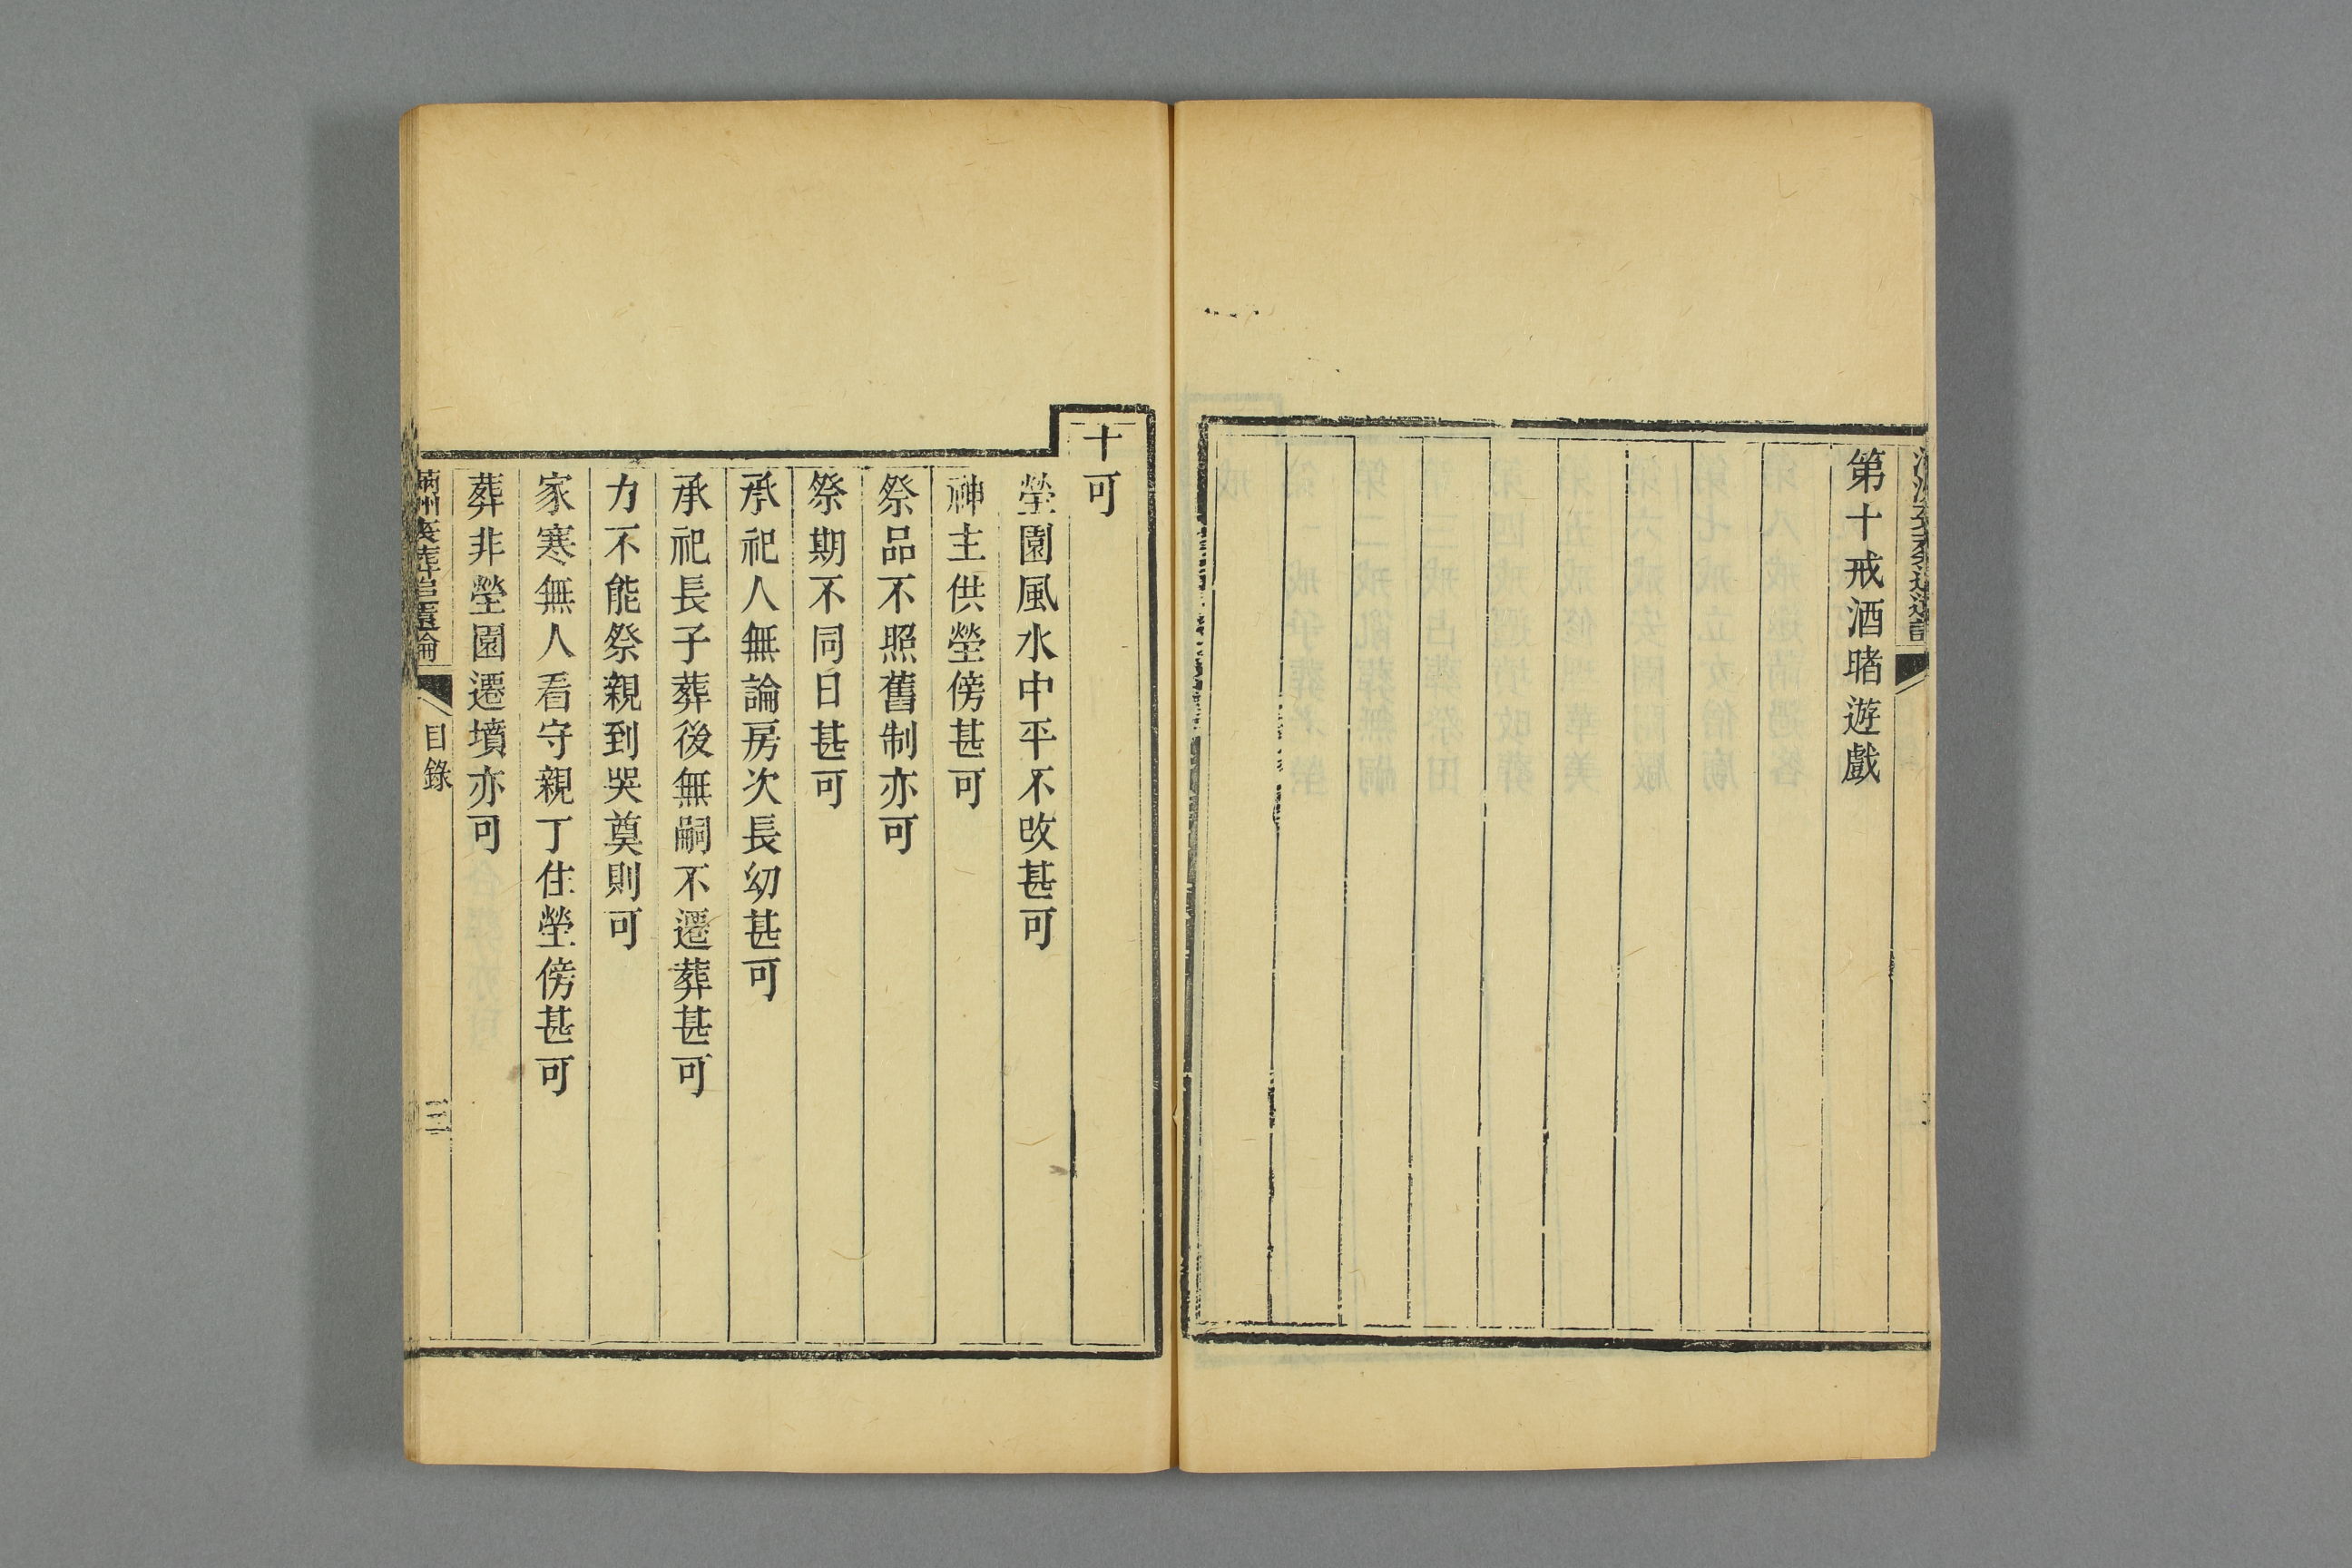 第十戒酒賭遊戲
十可
塋園風水中平不改甚可
神主供塋傍甚可
祭品不照舊制亦可
祭期不同日甚可
承祀人無論房次長幼甚可
承祀長子葬後無嗣不遷葬甚可
力不能祭親到哭奠則可
家寒無人看守親丁住塋傍甚可
葬非塋園遷墳亦可
目錄
三